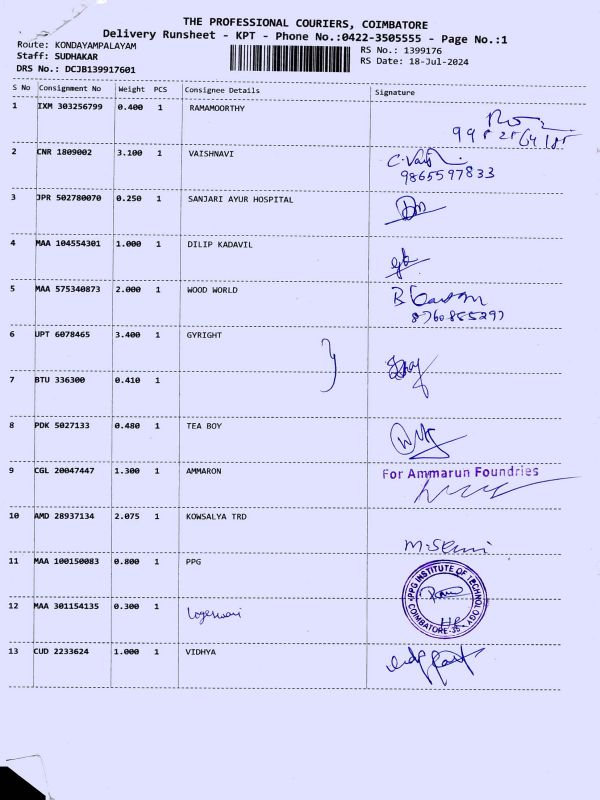 THE PROFESSIONAL COURIERS, COIMBATORE
Delivery Runsheet - KPT - Phone No.:0422-3505555 - Page No.:1
Route: KONDAYAMPALAYAM
Staff: SUDHAKAR
DRS No.: DCJB139917601
RS No.: 1399176
RS Date: 18-Jul-2024
S No Consignment No Weight PCS Consignee Details Signature
1 IXM 303256799 0.400 1 RAMAMOORTHY
2 CNR 1809002 3.100 1 VAISHNAVI
9865597833
3 JPR 502780070 0.250 1 SANJARI AYUR HOSPITAL
4 MAA 104554301 1.000 1 DILIP KADAVIL
5 MAA 575340873 2.000 1 WOOD WORLD
8760855297
6 UPT 6078465 3.400 1 GYRIGHT
7 BTU 336300 0.410 1
8 PDK 5027133 0.480 1 TEA BOY
9 CGL 20047447 1.300 1 AMMARON
For Ammarun Foundries
10 AMD 28937134 2.075 1 KOWSALYA TRD
11 MAA 100150083 0.800 1 PPG
PPG INSTITUTE OF TECHNOLOGY
COIMBATORE-35
12 MAA 301154135 0.300 1 Logeswari
13 CUD 2233624 1.000 1 VIDHYA